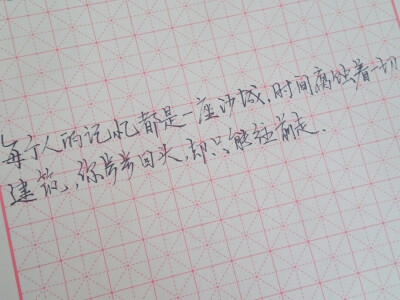 每个人的记忆都是一座沙城，时间腐蚀着一切
建筑，你步步回头，却只能往前走．